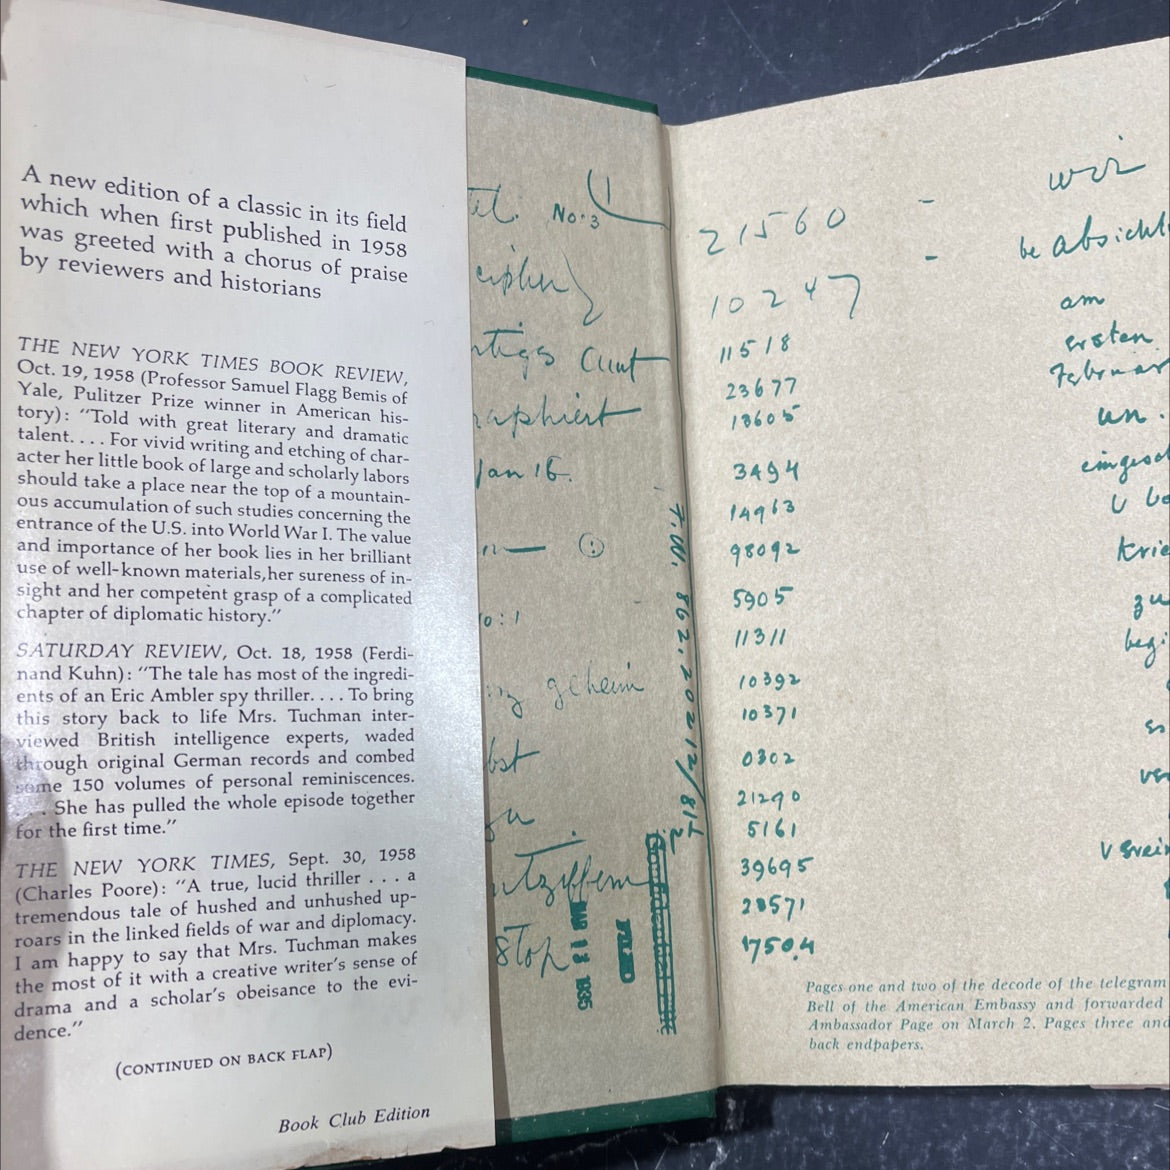 A new edition of a classic in its field
which when first published in 1958
was greeted with a chorus of praise
by reviewers and historians
THE NEW YORK TIMES BOOK REVIEW,
Oct. 19, 1958 (Professor Samuel Flagg Bemis of
Yale, Pulitzer Prize winner in American his-
tory): "Told with great literary and dramatic
talent. . . . For vivid writing and etching of char-
acter her little book of large and scholarly labors
should take a place near the top of a mountain-
ous accumulation of such studies concerning the
entrance of the U.S. into World War I. The value
and importance of her book lies in her brilliant
use of well-known materials, her sureness of in-
sight and her competent grasp of a complicated
chapter of diplomatic history."
SATURDAY REVIEW, Oct. 18, 1958 (Ferdi-
nand Kuhn): "The tale has most of the ingredi-
ents of an Eric Ambler spy thriller. . . . To bring
this story back to life Mrs. Tuchman inter-
viewed British intelligence experts, waded
through original German records and combed
some 150 volumes of personal reminiscences.
. She has pulled the whole episode together
for the first time."
THE NEW YORK TIMES, Sept. 30, 1958
(Charles Poore): "A true, lucid thriller . . . a
tremendous tale of hushed and unhushed up-
roars in the linked fields of war and diplomacy.
I am happy to say that Mrs. Tuchman makes
the most of it with a creative writer's sense of
drama and a scholar's obeisance to the evi-
dence."
(CONTINUED ON BACK FLAP)
Book Club Edition
tel. No. 3
Jan 16.
geheim
stop
MAR 13 1935
FILED
862.20212/81½
21560 - wir
10247 - beabsicht
11518 am
23677 ersten
13605 Februar
3494 un
14963
98092 U bo
5905 Krie
11311 zu
10392 begi
10371
0302
21290
5161
39695
23571
17504
Pages one and two of the decode of the telegram
Bell of the American Embassy and forwarded
Ambassador Page on March 2. Pages three and
back endpapers.